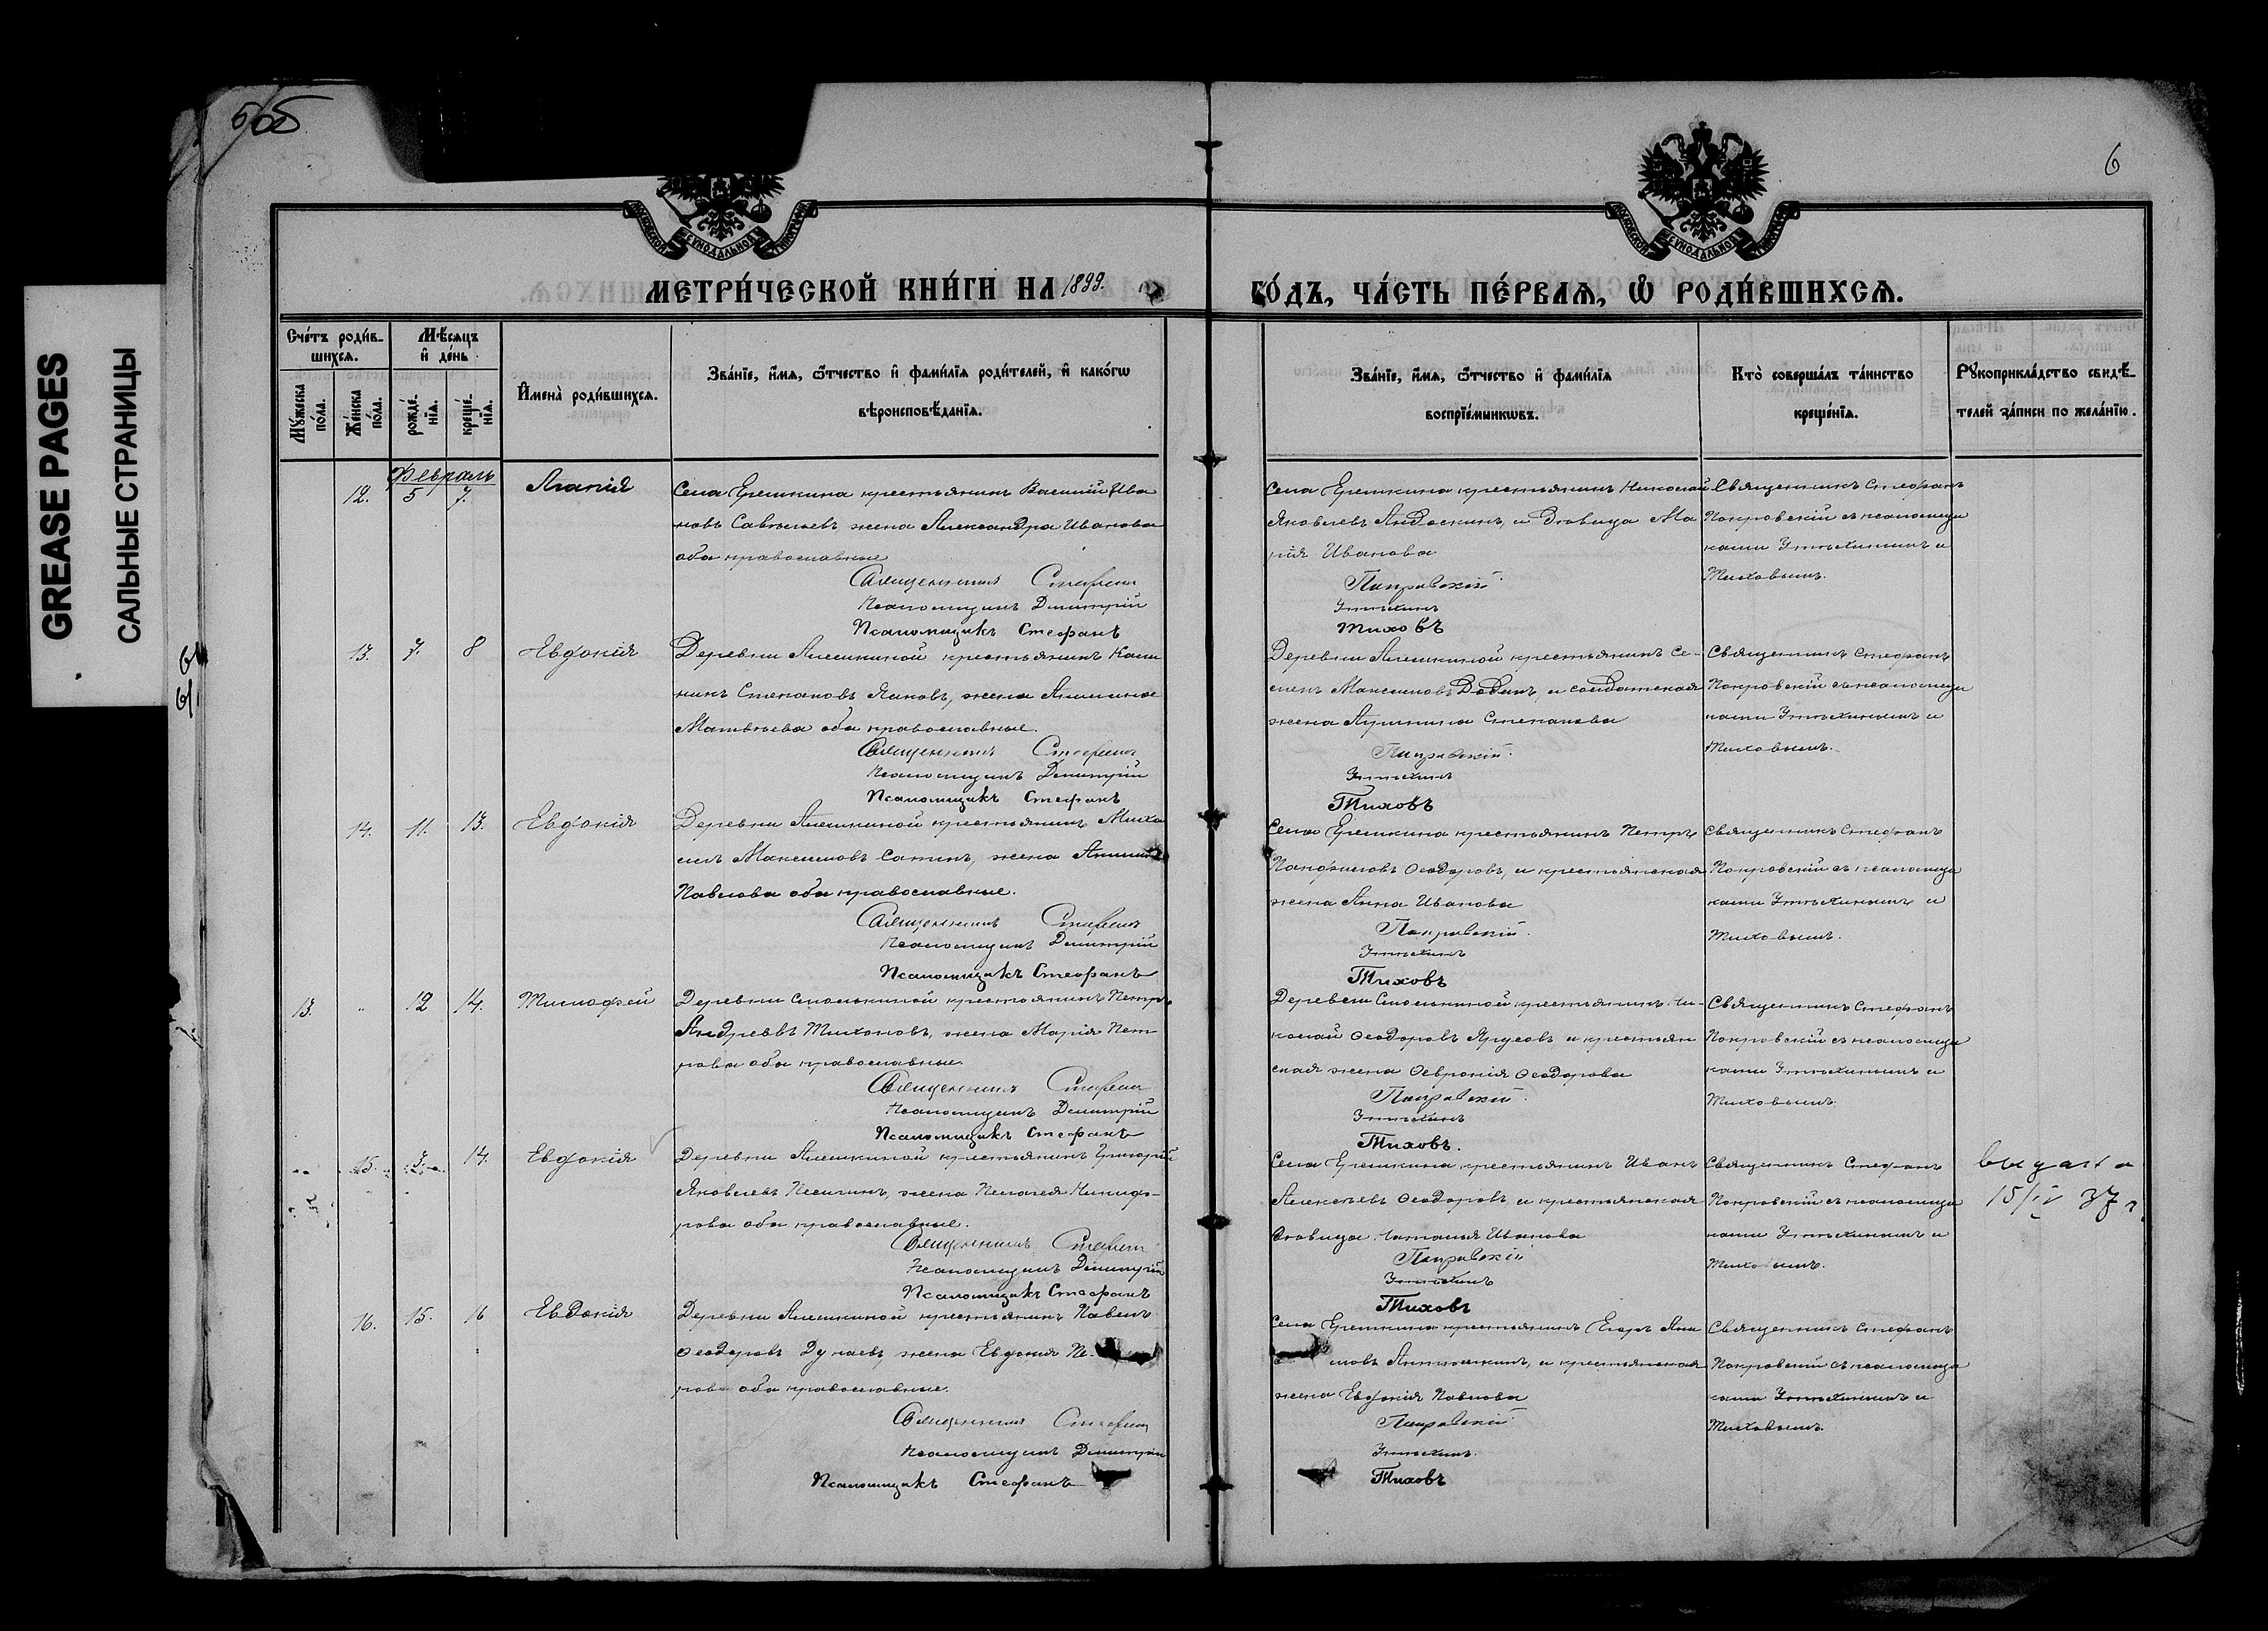 6
GREASE PAGES
САЛЬНЫЕ СТРАНИЦЫ
МЕТРИ́ЧЕСКОЙ КНИ́ГИ НА 1899.
ГО́ДЪ, ЧА́СТЬ ПЕ́РВАЯ, Ѡ РОДИ́ВШИХСЯ.
Сче́тъ роди́в-
шихся.
Мѣ́сяцъ
и҆ де́нь
Мꙋ́жеска
по́ла.
Же́нска
по́ла.
рожде́-
нїя.
креще́-
нїя.
И҆мена̀ роди́вшихся.
Зва́нїе, и҆́мя, ѻ҆́тчество и҆ фами́лїя роди́телей, и҆ како́гѡ
вѣроисповѣ́данїя.
Зва́нїе, и҆́мя, ѻ҆́тчество и҆ фами́лїя
воспрїе́мникѡвъ.
Кто̀ соверша́лъ та́инство
креще́нїя.
Рꙋкоприкла́дство свидѣ́-
телей за́писи по жела́нїю.
Февраль
12. 5 7. Агапія
Села Ерешкина крестьянинъ Василій Ива
новъ Савельевъ жена Александра Иванова
оба православные
Священникъ Стефанъ
Псаломщикъ Димитрій
Псаломщикъ Стефанъ
Села Ерешкина крестьянинъ Николай
Яковлевъ Андоскинъ, и вдовица Ма
рія Иванова
Покровскій
Утѣхинъ
Тиховъ
Священникъ Стефанъ
Покровскій съ псаломщи
ками Утѣхинымъ и
Тиховымъ.
13. 7. 8 Евдокія
Деревни Алешкиной крестьянинъ Кали
никъ Степановъ Яшковъ, жена
Матвѣева оба православные.
Священникъ Стефанъ
Псаломщикъ Димитрій
Псаломщикъ Стефанъ
Деревни Алешкиной крестьянинъ Се-
менъ Максимовъ и солдатская
жена Степанова
Покровскій
Утѣхинъ
Тиховъ
Священникъ Стефанъ
Покровскій съ псаломщи
ками Утѣхинымъ и
Тиховымъ.
14. 11. 13. Евдокія
Деревни Алешкиной крестьянинъ Миха
илъ Максимовъ Сапинъ, жена
Павлова оба православные.
Священникъ Стефанъ
Псаломщикъ Димитрій
Псаломщикъ Стефанъ
Села Ерешкина крестьянинъ Петръ
Панфиловъ Ѳеодоровъ, и крестьянская
жена Анна Иванова
Покровскій
Утѣхинъ
Тиховъ
Священникъ Стефанъ
Покровскій съ псаломщи
ками Утѣхинымъ и
Тиховымъ.
13. " 12 14. Тимофей
Деревни крестьянинъ Петръ
Андреевъ Тихоновъ, жена Марія Пет
рова оба православные.
Священникъ Стефанъ
Псаломщикъ Димитрій
Псаломщикъ Стефанъ
Деревни крестьянинъ Ни-
колай Ѳеодоровъ Ярусовъ и крестьян
ская жена Ѳевронія Ѳеодорова
Покровскій
Утѣхинъ
Тиховъ.
Священникъ Стефанъ
Покровскій съ псаломщи
ками Утѣхинымъ и
Тиховымъ.
15. 14. Евдокія
Деревни Алешкиной крестьянинъ Григорій
Яковлевъ жена Пелагея Никифо-
рова оба православные.
Священникъ Стефанъ
Псаломщикъ Димитрій
Псаломщикъ Стефанъ
Села Ерешкина крестьянинъ Иванъ
Алексѣевъ Ѳеодоровъ, и крестьянская
вдовица Наталья Иванова
Покровскій
Утѣхинъ
Тиховъ
Священникъ Стефанъ
Покровскій съ псаломщи
ками Утѣхинымъ и
Тиховымъ.
выдана
15/IV 37 г.
16. 15. 16 Евдокія
Деревни Алешкиной крестьянинъ Павелъ
Ѳеодоровъ Дунаевъ, жена Евдокія Пе-
рова оба православные.
Священникъ Стефанъ
Псаломщикъ Димитрій
Псаломщикъ Стефанъ
Села Ерешкина крестьянинъ Егоръ
мовъ Антошкинъ, и крестьянская
жена Евдокія Павлова
Покровскій
Утѣхинъ.
Тиховъ
Священникъ Стефанъ
Покровскій съ псаломщи
ками Утѣхинымъ и
Тиховымъ.